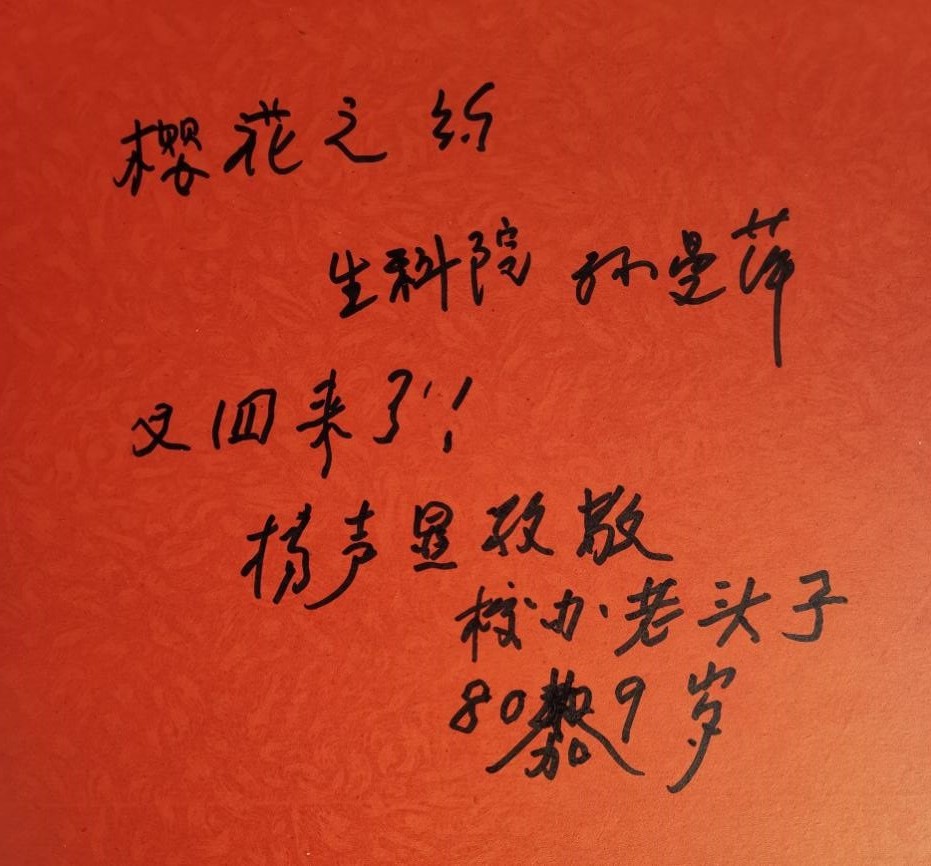 樱花之约
生科院 孙曼萍
又回来了!
杨声显致敬
校办老头子
80加9岁